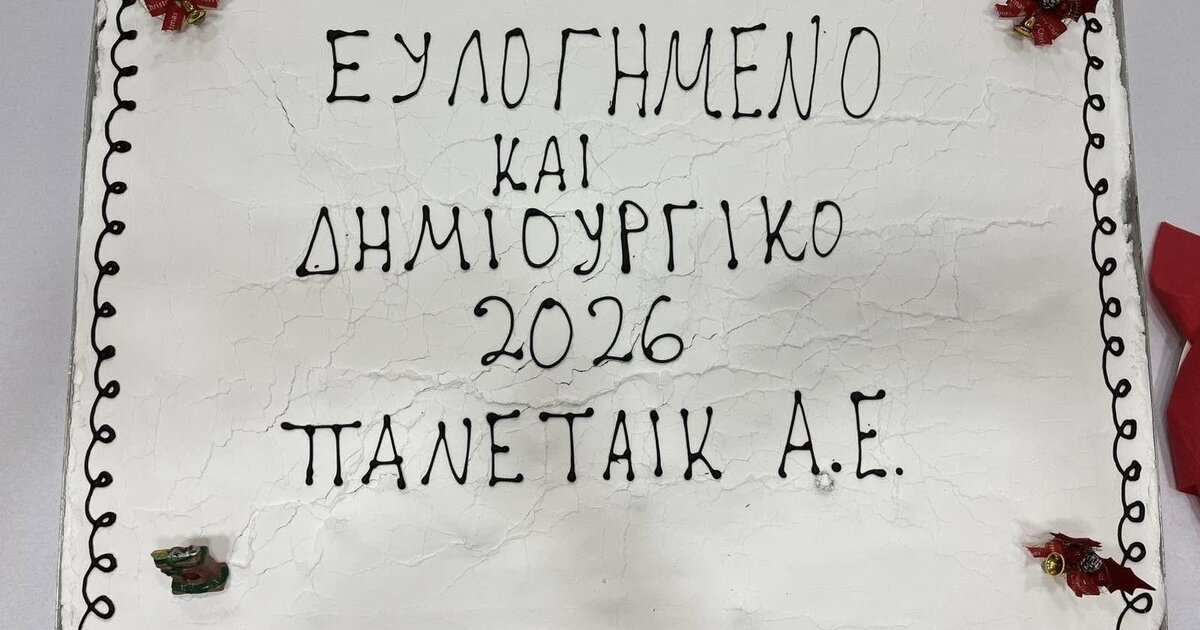 ΕΥΛΟΓΗΜΕΝΟ
ΚΑΙ
ΔΗΜΙΟΥΡΓΙΚΟ
2026
ΠΑΝΕΤΑΙΚ Α.Ε.